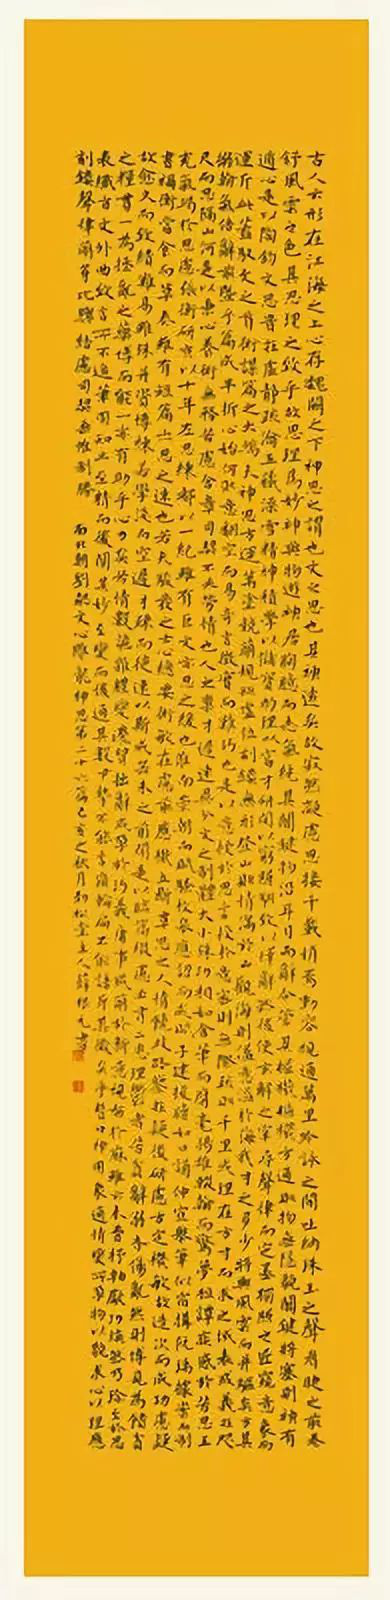 古人云形在江海之上心存魏闕之下神思之謂也文之思也其神遠矣故寂然凝慮思接千載悄焉動容視通萬里吟詠之間吐納珠玉之聲眉睫之前卷
舒風雲之色其思理之致乎故思理為妙神與物遊神居胸臆而志氣統其關鍵物沿耳目而辭令管其樞機樞機方通則物無隱貌關鍵將塞則神有
遁心是以陶鈞文思貴在虛靜疏瀹五藏澡雪精神積學以儲寶酌理以富才研閱以窮照馴致以繹辭然後使玄解之宰尋聲律而定墨獨照之匠窺意象而
運斤此蓋馭文之首術謀篇之大端夫神思方運萬塗競萌規矩虛位刻鏤無形登山則情滿於山觀海則意溢於海我才之多少將與風雲而並驅矣方其
搦翰氣倍辭前暨乎篇成半折心始何則意翻空而易奇言徵實而難巧也是以意授於思言授於意密則無際疏則千里或理在方寸而求之域表或義在咫
尺而思隔山河是以秉心養術無務苦慮含章司契不必勞情也人之稟才遲速異分文之制體大小殊功相如含筆而腐毫揚雄輟翰而驚夢桓譚疾感於苦思王
充氣竭於思慮張衡研京以十年左思練都以一紀雖有巨文亦思之緩也淮南崇朝而賦騷枚皋應詔而成賦子建援牘如口誦仲宣舉筆似宿構阮瑀據案而制
書禰衡當食而草奏雖有短篇亦思之速也若夫駿發之士心總要術敏在慮前應機立斷覃思之人情饒歧路鑒在疑後研慮方定機敏故造次而成功慮疑
故愈久而致績難易雖殊並資博練若學淺而空遲才疏而徒速以斯成器未之前聞是以臨篇綴慮必有二患理鬱者苦貧辭溺者傷亂然則博見為饋貧
之糧貫一為拯亂之藥博而能一亦有助乎心力矣若情數詭雜體變遷貿拙辭或孕於巧義庸事或萌於新意視布於麻雖云未費杼軸獻功煥然乃珍至於思
表纖旨文外曲致言所不追筆固知止至精而後闡其妙至變而後通其數伊摯不能言鼎輪扁不能語斤其微矣乎贊曰神用象通情變所孕物以貌求心以理應
刻鏤聲律萌芽比興結慮司契垂帷制勝 南北朝劉勰文心雕龍神思第二十六篇己亥之秋月於松堂主人薛元書